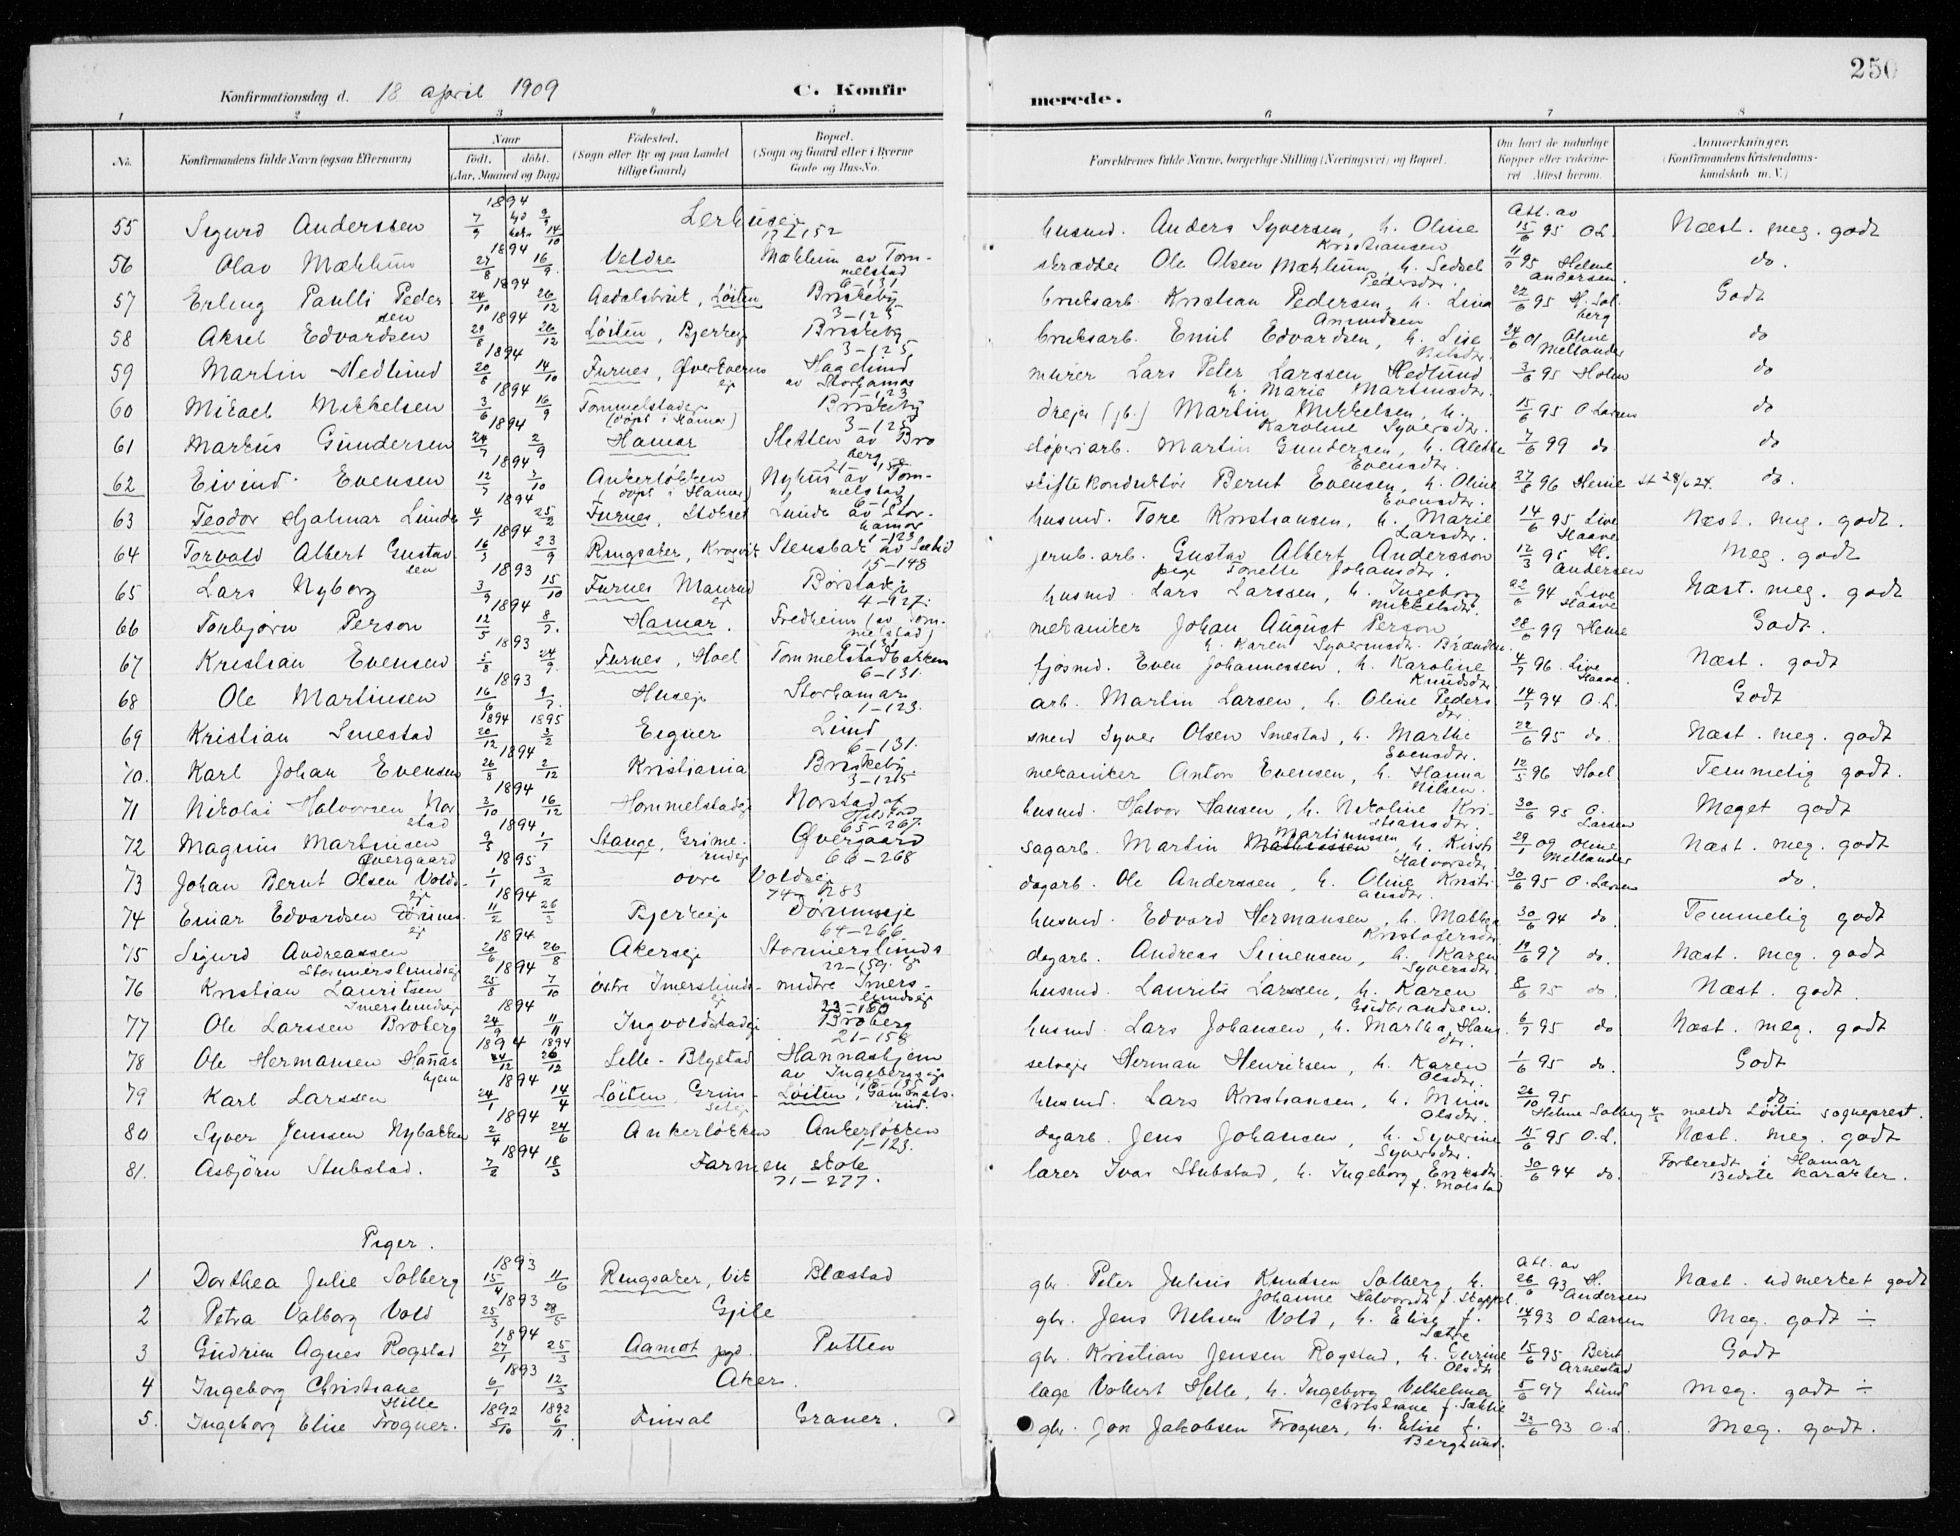 250
Konfirmationsdag d. 18 april 1909 C. Konfirmerede.
1 2 3 4 5 6 7 8
No. Konfirmandens fulde Navn (ogsaa Efternavn) Naar født, døbt. (Aar, Maaned og Dag) Fødested. (Sogn eller By og paa Landet tillige Gaard) Bopæl. (Sogn og Gaard eller i Byerne Gade og Hus-No. Forældrenes fulde Navne, borgerlige Stilling (Næringsvei) og Bopæl. Om havt de naturlige Kopper eller vakcineret. Attest herom. Anmærkninger. (Konfirmandens Kristendomskundskab m. V.)
55 Sigurd Anderssen 1894 7/9 14/10 husmd. Anders Syversen, h. Oline Kristiansen Att. av 15/6 95 O.L. Næst. meg. godt
56 Olav Mæhlum 1894 27/8 16/9 Veldre Mæhlum av Tommelstad 6-131 skrædder Ole Olsen Mæhlum, h. Sedsel Pedersdtr. 95 Helene Andersen do.
57 Erling Paulli Pedersen 1894 24/10 26/12 Aadalsbruk, Løiten Briskeby 3-125 bruksarb. Kristian Pedersen, h. Lina Amundsen 22/6 95 H. Solberg Godt
58 Aksel Edvardsen 1894 29/8 26/12 Løiten, Bjerkeeje Briskeby 3-125 bruksarb. Emil Edvardsen, h. Lise Nilsdtr. 24/6 01 Oline Mellander do
59 Martin Hedlund 1894 20/8 14/10 Furnes, Øverkverns ej Hagelund av Storhamar 1-123 murer Lars Peter Larssen Hedlund h. Marie Martinsdtr. 3/6 95 Holen do
60 Mikael Mikkelsen 1894 3/6 16/9 Tommelstadeje (døpt i Hamar) Briskeby 3-125 drejer (jb.) Martin Mikkelsen, h. Karoline Syversdtr. 15/6 95 O Larsen do
61 Markus Gundersen 1894 24/7 2/9 Hamar Sletten av Broberg støperiarb. Martin Gundersen, h. Alette Evensdtr. 7/6 99 do do
62 Eivind Evensen 1894 12/7 7/10 Ankerløkken (døpt i Hamar) Nyhus av Tommelstad 6-131 skiftekonduktør Bernt Evensen, h. Oline Evensdtr. 27/8 96 Heine do.
63 Teodor Hjalmar Lunde 1894 4/1 25/2 Furnes, Stokset Lunde av Storhamar 1-123 husmd. Tore Kristiansen, h. Marie Larsdtr. 14/6 95 Live Haave Næst. meg. godt.
64 Torvald Albert Gustavsen 1894 16/3 23/9 Ringsaker, Krogvik Stensbak av Sælid 15-148 jernb. arb. Gustav Albert Andersson pige Tonette Johansdtr. 12/3 95 H. Andersen Meg. godt
65 Lars Nyborg 1893 3/9 15/10 Furnes Maurud ej Børstadeje 4-127. husmd. Lars Larssen, h. Ingeborg Mikkelsdtr. 22/6 94 Live Haave Næst. meg. godt
66 Torbjørn Person 1894 12/5 8/7. Hamar. Fredheim (av Tommelstad) 6-131 mekaniker Johan August Person h. Karen Syverinsdtr. Brænden 28/6 99 Heine Godt.
67 Kristian Evensen 1893 5/8 24/9 Furnes, Hoel Tommelstadbakken 6-131. fjøsmd. Even Johannessen, h. Karoline Knudsdtr. 4/7 96. Live Haave. Næst. godt
68 Ole Martinsen 1893 16/6 9/7. Huseje Storhamar 1-123. arb. Martin Larsen, h. Oline Pedersdtr. 14/7 94 O.L. Godt
69 Kristian Smestad 1894 1895 20/12 3/2 Eegner Lund 6-131. smed Syver Olsen Smestad, h. Marthe Evensdtr. 22/6 95 do. Næst. meg. godt
70. Karl Johan Evensen 1894 26/8 2/12 Kristiania Briskeby 3-125 mekaniker Anton Evensen, h. Hanna Nilsen. 12/5 96 Hoel Temmelig godt.
71 Nikolai Halvorsen Norstad 1894 3/10 16/12 Hommelstadeje Norstad af 65-267. husmd. Halvor Hansen, h. Nikoline Kristiansdtr. 30/6 95 O. Larsen Meget godt
72 Magnus Martinsen Øvergaard 1894 9/5 1/7 Stange, Grimerudej Øvergaard 66-268 sagarb. Martin Martinussen, h. Kirsti Halvorsdtr. 29/1 09 Oline Mellander Næst. meg. godt
73 Johan Bernt Olsen Voldseje 1895 1/1 3/2 øvre Voldseje 74-283 dagarb. Ole Anderssen, h. Oline Kristiansdtr. 30/6 95 O. Larsen do.
74 Einar Edvardsen Dørumsej 1894 11/2 26/3 Bjerkeje Dørumseje 64-266 husmd. Edvard Hermansen, h. Mathea Kristofersdtr. 30/6 94 do Temmelig godt
75 Sigurd Andreassen Stormerslundseje 1894 20/6 26/8 Akerseje Stormerslunds ej 22-159. dagarb. Andreas Simensen, h. Karen Syversdtr. 19/6 97 do. Næst. meg. godt
76 Kristian Lauritsen Imerslundseje 1894 25/8 7/10 østre Imerslundsej midtre Imerslundseje 23-160 husmd. Laurits Larssen, h. Karen Gudbrandsen. 8/6 95 do Næst. godt.
77 Ole Larssen Broberg 1894 24/9 11/11 Ingvoldstadeje Broberg 21-158 husmd. Lars Johansen, h. Martha Hansdtr. 6/7 95 do Næst. meg. godt
78 Ole Hermansen Hannashjem 1894 1894 24/12 26/12 Lille-Blystad Hannashjem av Ingebergseje selveje Herman Henriksen, h. Karen Olsdtr. 1/6 95 do. Godt
79 Karl Larssen 1894 24/1 14/4 Løiten Grimseteje Løiten, Gammelsrud. husmd. Lars Kristiansen, h. Mina Olsdtr. 26/10 95 Helene Solberg do meldt Løiten sogneprest.
80 Syver Jenssen Nybakken 1894 2/4 24/6 Ankerløkken Ankerløkken 1-123. dagarb. Jens Johansen, h. Syverine Syversdtr. 15/6 95 O.L. Næst. meg. godt
81. Asbjørn Stubstad. 1894 7/2 18/3 Farmen skole 71-277. lærer Ivar Stubstad, h. Ingeborg Eriksdtr f. Molstad 30/6 94 do. Forberedt i Hamar Bedste karakter.
Piger.
1 Dorthea Julie Solberg 1893 15/4 11/6 Ringsaker, Vik Blæstad gbr. Peter Julius Knudsen Solberg, h. Johanne Halvorsdtr f. Stoppel Att. av 26/6 93 H. Andersen Næst. udmerket godt
2 Petra Valborg Vold 1893 25/3 28/5 Gjile gbr. Jens Nilsen Vold, h. Elise f. Sætre 14/7 93 O Larsen Meg. godt ÷
3 Gudrun Agnes Rogstad 1894 27/1 25/3 Aamot pgd. Putten gbr. Kristian Jensen Rogstad, h. Gurine Olsdtr 15/6 95 Berit Arnestad Godt
4 Ingeborg Christiane Hille 1893 6/1 12/3 Aker. læge Volkert Hille, h. Ingeborg Vilhelmea Christiane f. Sække 5/6 97 Lund Meg. godt ÷
5. Ingeborg Elise Frogner. 1892 1892 5/10 6/11. Finsal Graner. gbr. Jon Jakobsen Frogner, h. Elise f. Berglund. 23/6 93 O.L. Meg. godt.